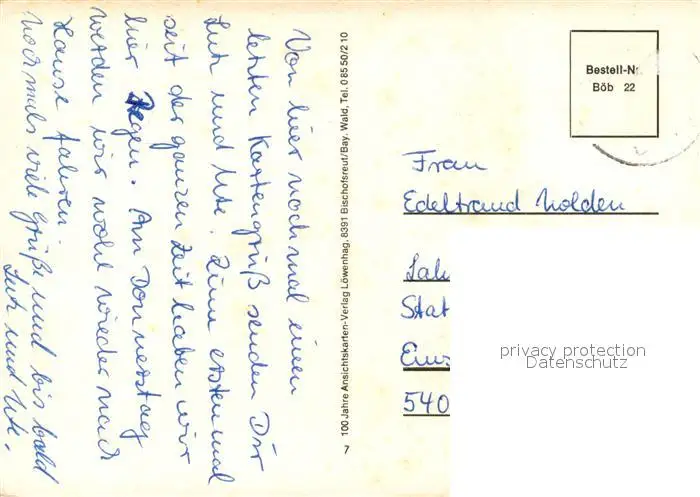 Von hier nochmal einen
letzten Kartengruß senden Dir
Lutz und Ute. Zum erstenmal
seit der ganzen Zeit haben wir
hier Regen. Am Donnerstag
werden wir wohl wieder nach
Hause fahren.
Nochmals viele Grüße und bis bald
Lutz und Ute.
100 Jahre Ansichtskarten-Verlag Löwenhag, 8391 Bischofsreut/Bay. Wald, Tel. 08550/210
7
Bestell-Nr
Böb 22
Frau
Edeltraud Nolden
Stat
540
privacy protection
Datenschutz